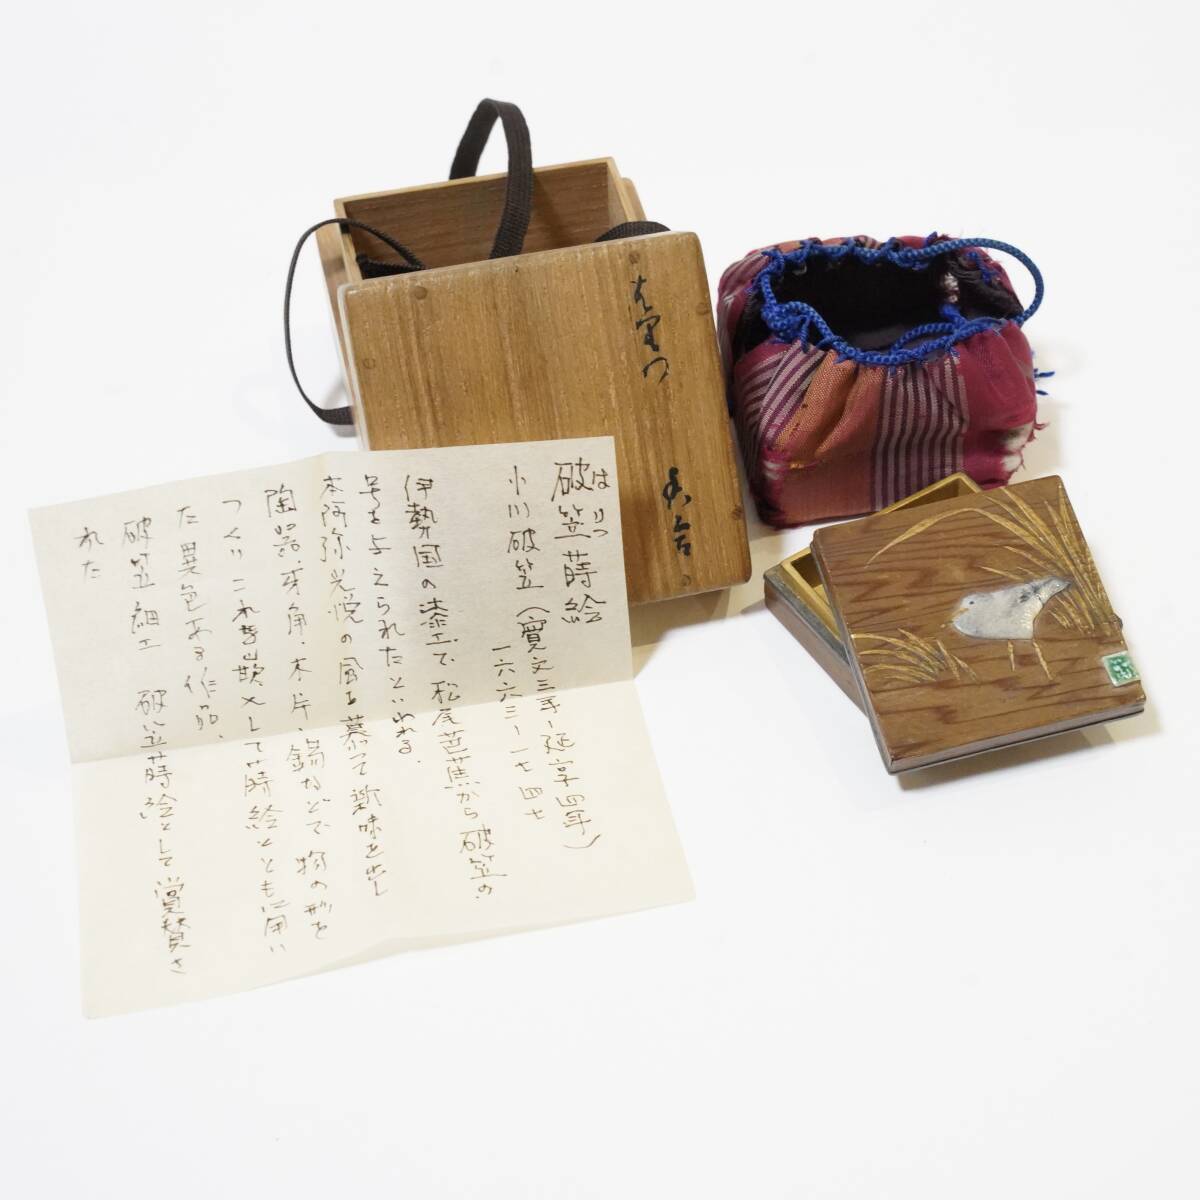 はりつ
破笠蒔絵
小川破笠（寛文三年ー延享四年）
一六六三ー一七四七
伊勢国の漆工で、松尾芭蕉から破笠の
号を与えられたといわれる。
本阿弥光悦の風を慕って新味を出し
陶器、牙角、木片、錫などで物の形を
つくりこれを嵌入して蒔絵とともに用い
た異色ある作品、
破笠細工　破笠蒔絵として賞賛さ
れた
香合